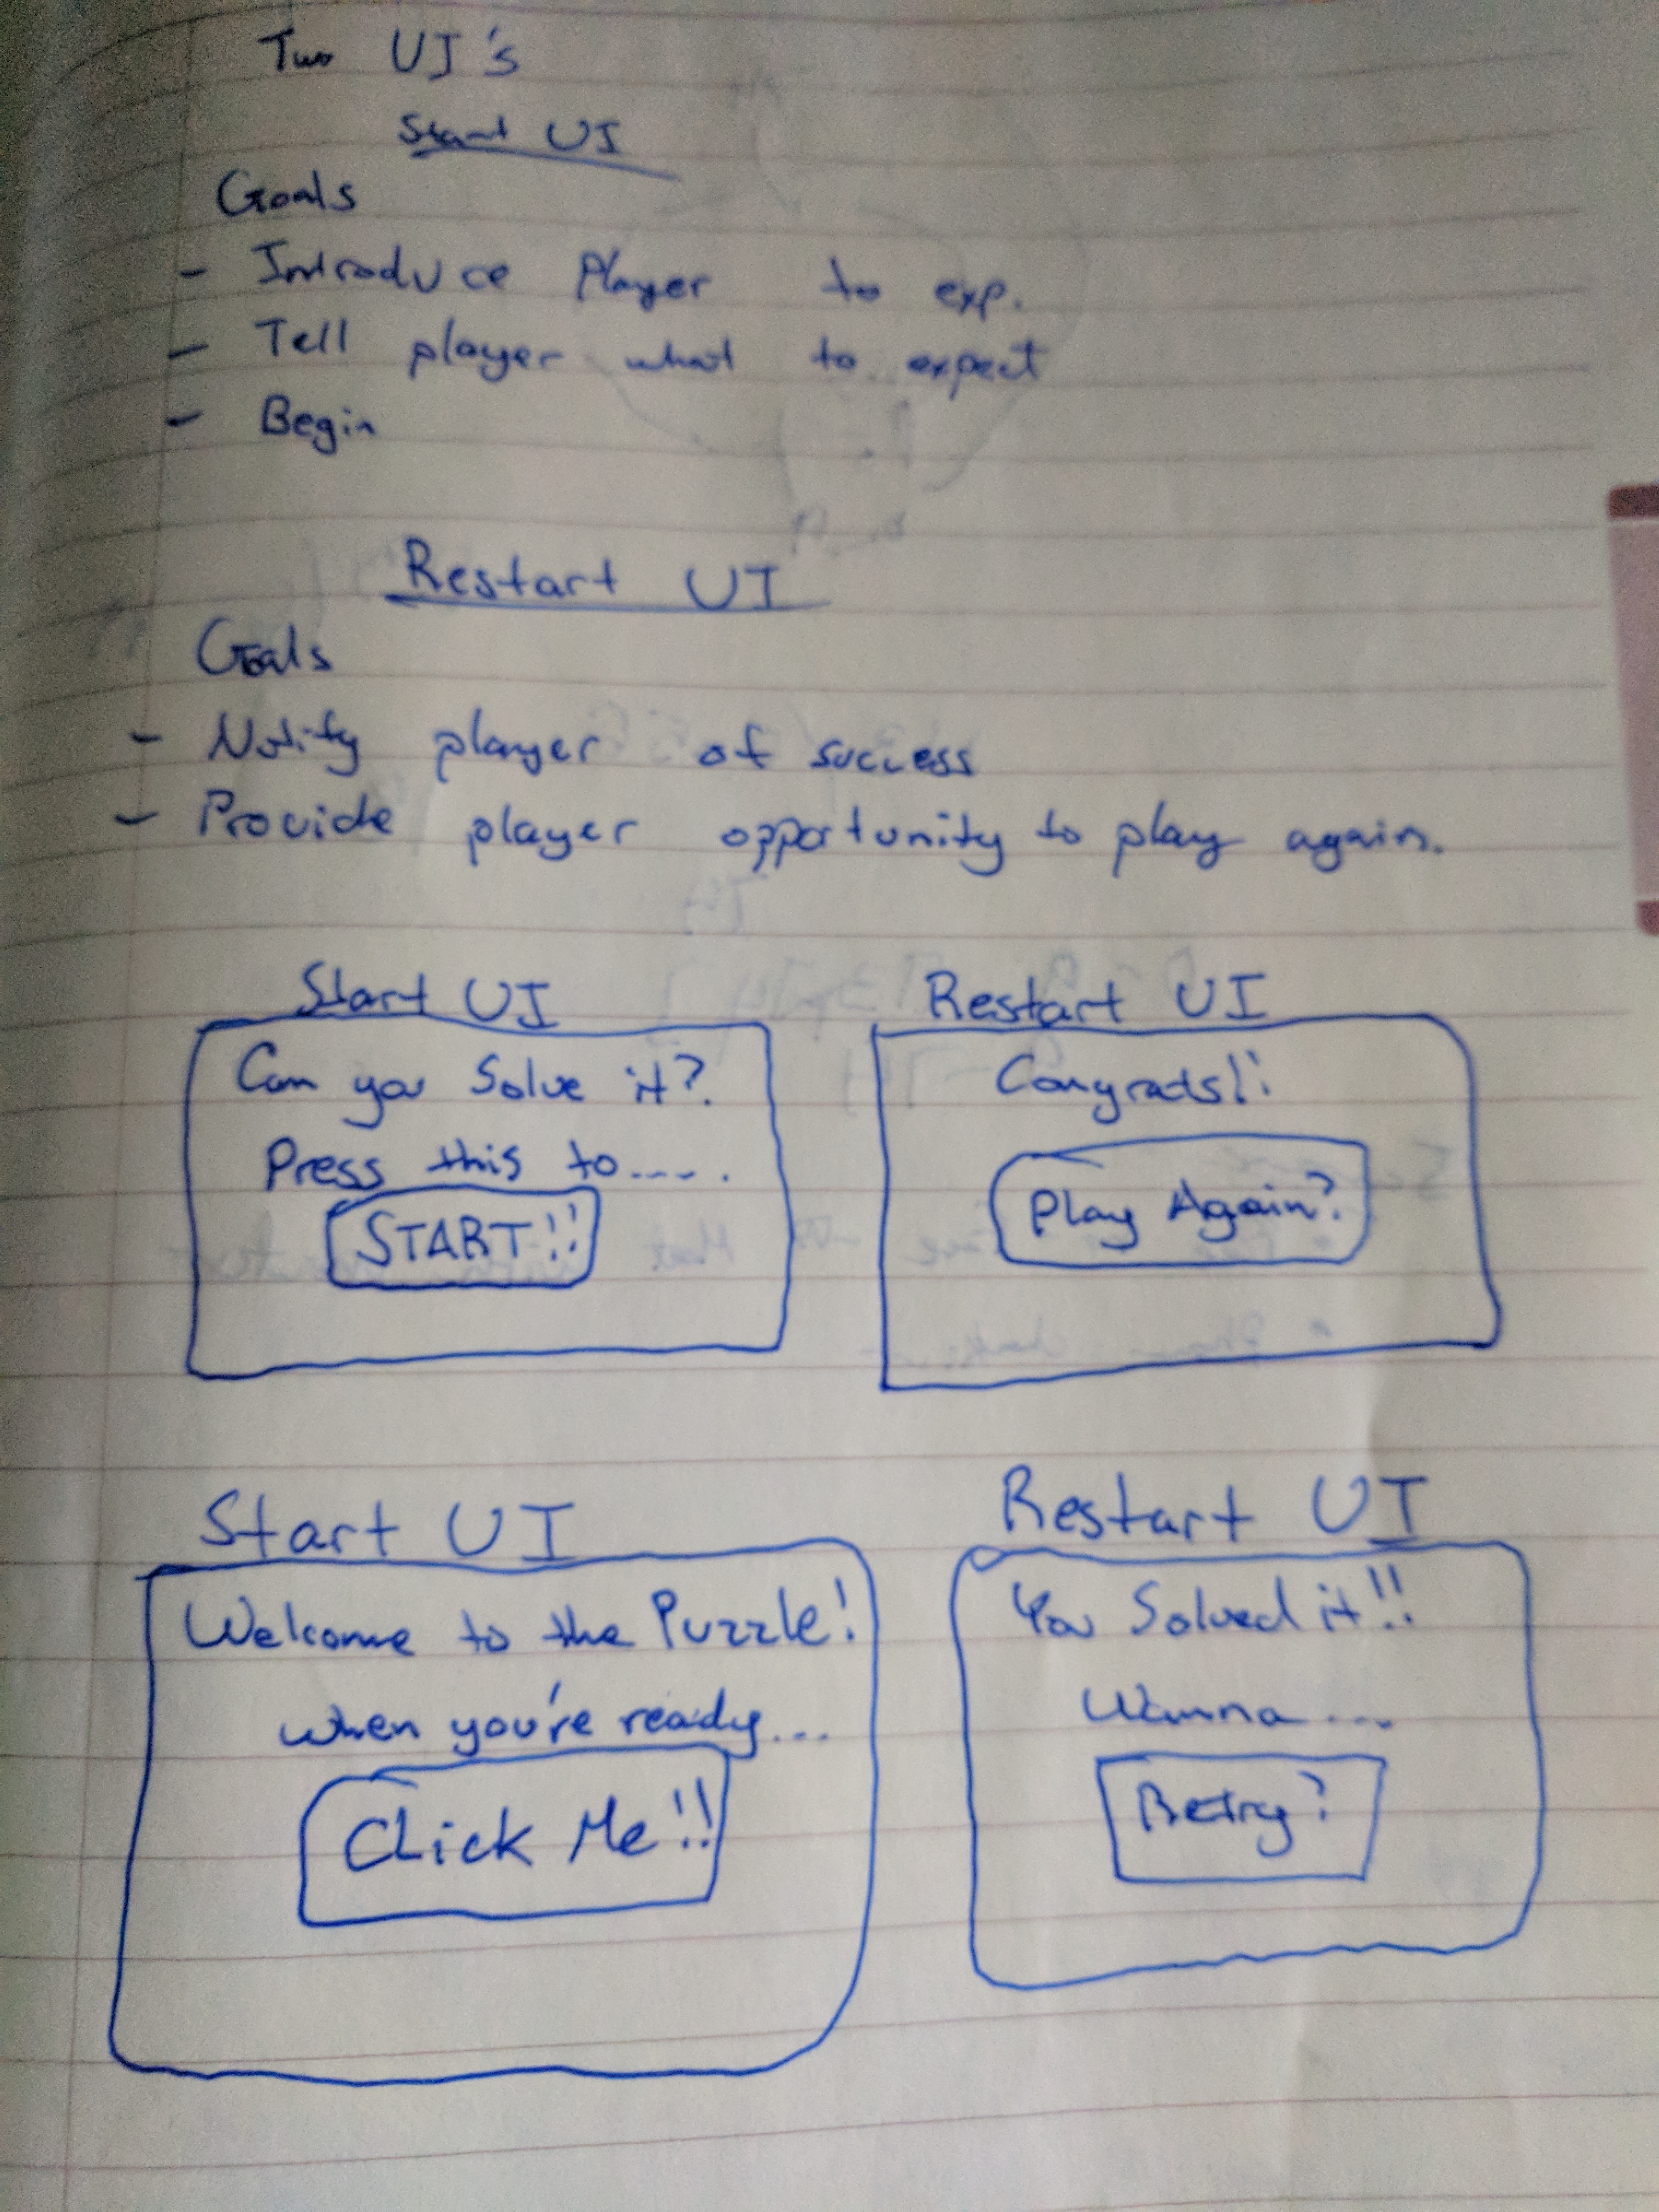 Two UI's
Start UI
Goals
- Introduce Player to exp.
- Tell player what to expect
- Begin
Restart UI
Goals
- Notify player of success
- Provide player opportunity to play again.
Start UI
Can you Solve it?
Press this to.....
START!!
Restart UI
Congrats!!
Play Again?
Start UI
Welcome to the Puzzle!
when you're ready...
Click Me!!
Restart UI
You Solved it!!
Wanna...
Retry?